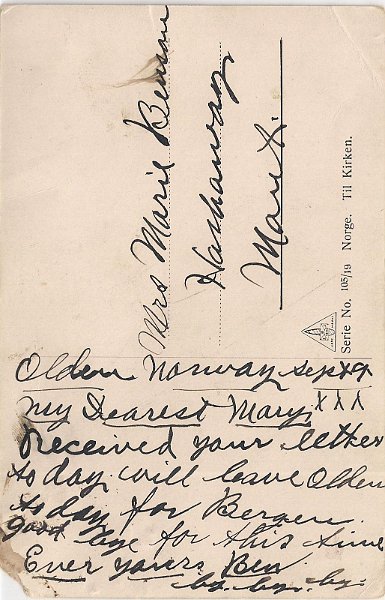 Mrs Marie Benson
Hathaway
Mont.
Serie No. 105/19 Norge. Til Kirken.
Olden Norway sept
My Dearest Mary xxx
Received your letter
to day will leave Olden
to day for Bergen.
good bye for this time
Ever yours Ben
by. by. by.